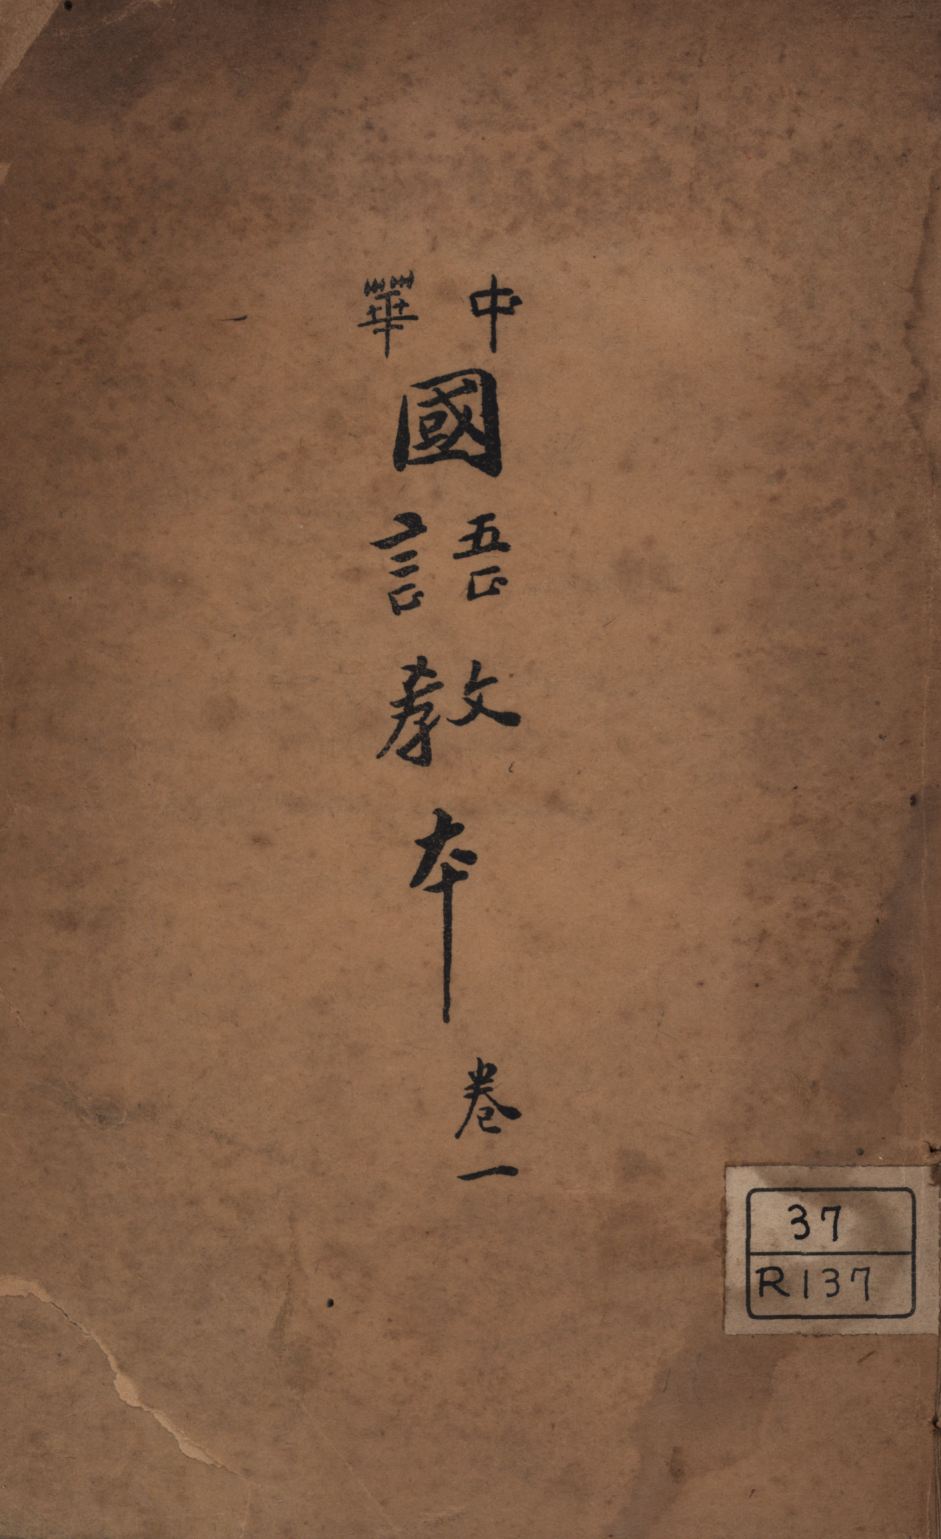 中華
國語教本
卷一
37
R137